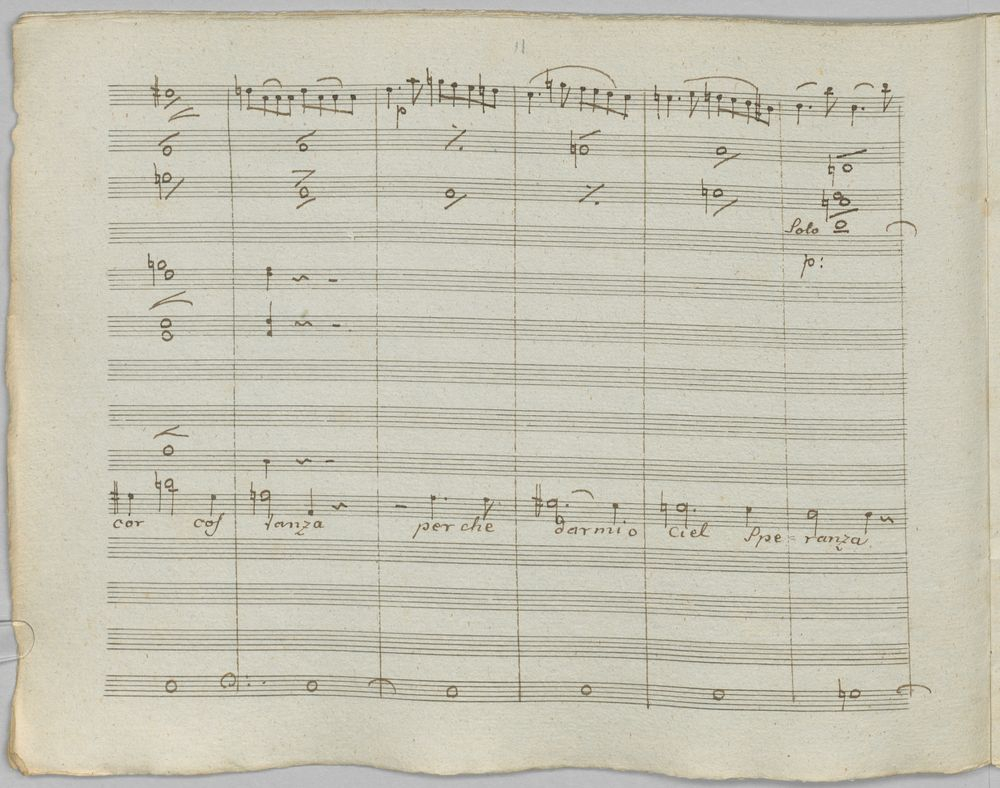 11
p
Solo
p:
cor cos tanza perche darmi o ciel spe = ranza